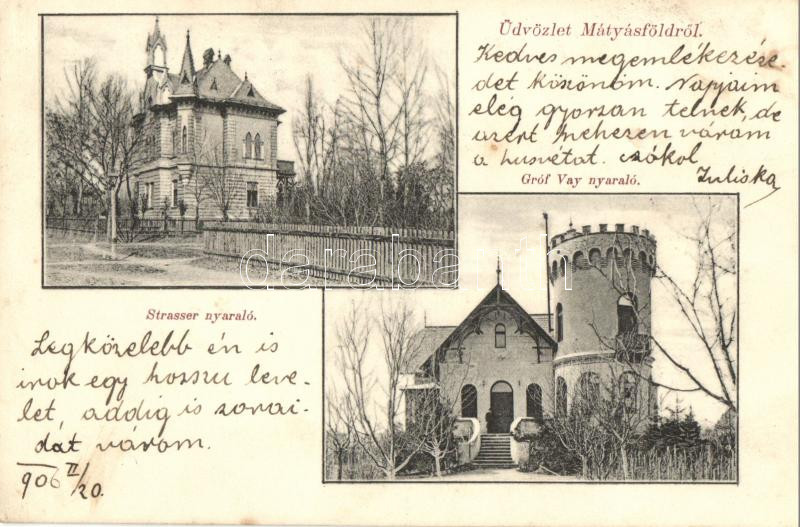 Üdvözlet Mátyásföldről.
Kedves megemlékezése.
det köszönöm. Napjaim
elég gyorsan telnek, de
azért nehezen várom
a husvétot. csókol
Juliska
Gróf Vay nyaraló.
darabanth
Strasser nyaraló.
Legközelebb én is
irok egy hosszu leve-
let, addig is sorai-
dat várom.
906 II/20.